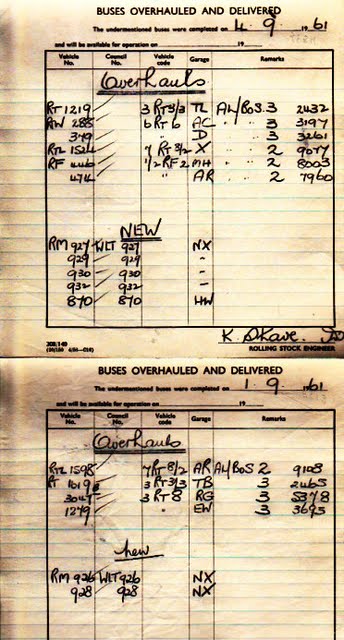 BUSES OVERHAULED AND DELIVERED
The undermentioned buses were completed on 4. 9. 1961
and will be available for operation on 19
Vehicle No. Council No. Vehicle code Garage Remarks
Overhauls
RT 1219 3 RT3/3 TL AL/BOS. 3 2432
285 6 RT 6 AC " " 3 3197
349 " D " " 3 3261
RTL 1524 7 RT 3/2 X " " 2 9077
RF 446 1/2 RF 2 MH " " 2 8003
474 " AR " " 2 7960
NEW
RM 927 WLT 927 NX
929 929 "
930 930 "
932 932 "
870 870 HW
K. Shave.
ROLLING STOCK ENGINEER
BUSES OVERHAULED AND DELIVERED
The undermentioned buses were completed on 1. 9. 1961
and will be available for operation on 19
Vehicle No. Council No. Vehicle code Garage Remarks
Overhauls
RTL 1598 7 RT 8/2 AR AL/BOS 2 9108
RT 1619 3 RT3/3 TB 3 2465
3047 3 RT 8 RG 3 5378
1279 " EW 3 3695
new
RM 926 WLT 926 NX
928 928 NX